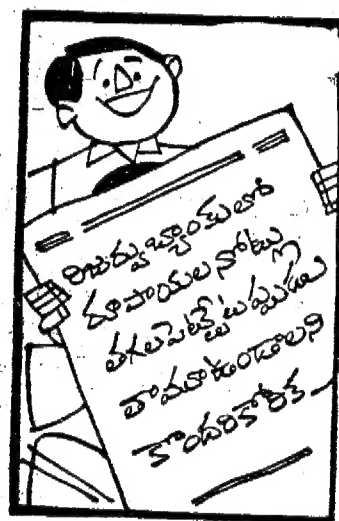 రిజర్వుబ్యాంకులో
రూపాయల నోట్లు
తగలపెట్టేటప్పుడు
తామూకుండాలని
కొందరికోరిక